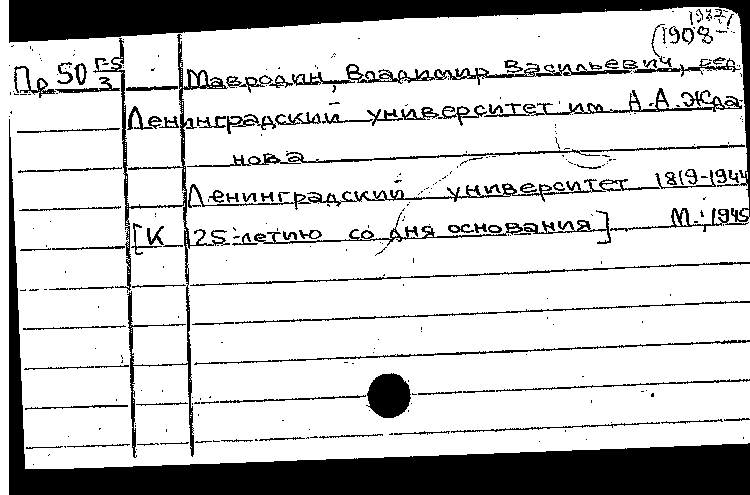 1987
(1908-
Пр 50 Г-5/3 Мавродин, Владимир Васильевич, ред.
Ленинградский университет им. А.А.Жда
нова.
Ленинградский университет 1819-1944
[К 125-летию со дня основания]. М.; 1945